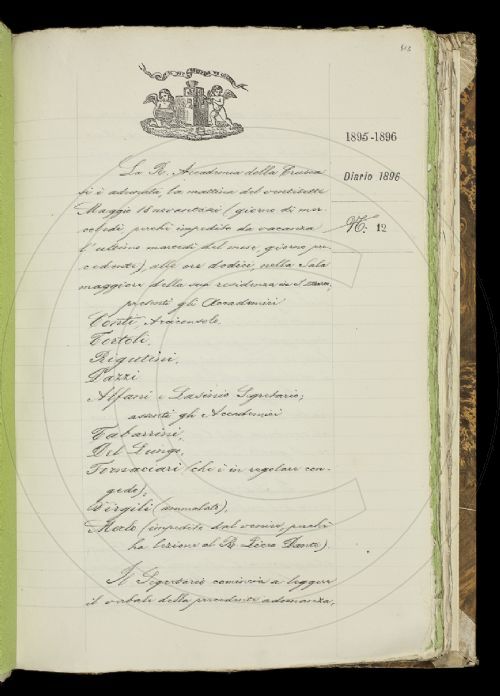 1895-1896
Diario 1896
N.º 12
La R. Accademia della Crusca
si è adunata, la mattina del ventisette
Maggio 18 novantasei (giorno di mer-
coledì, perchè impedito da vacanza
l'ultimo martedì del mese, giorno pre-
cedente), alle ore dodici, nella Sala
maggiore della sua residenza in S. Marco,
presenti gli Accademici
Conti, Arciconsolo,
Tortoli,
Rigutini,
Dazzi
Alfani e Dasirio Segretario;
assenti gli Accademici
Tabarrini,
Del Lungo,
Fornaciari (che è in regolare con-
gedo);
Virgili (ammalato),
Merlo (impedito dal venire, perchè
ha lezione al R. Liceo Dante).
Il Segretario comincia a leggere
il verbale della precedente adunanza,